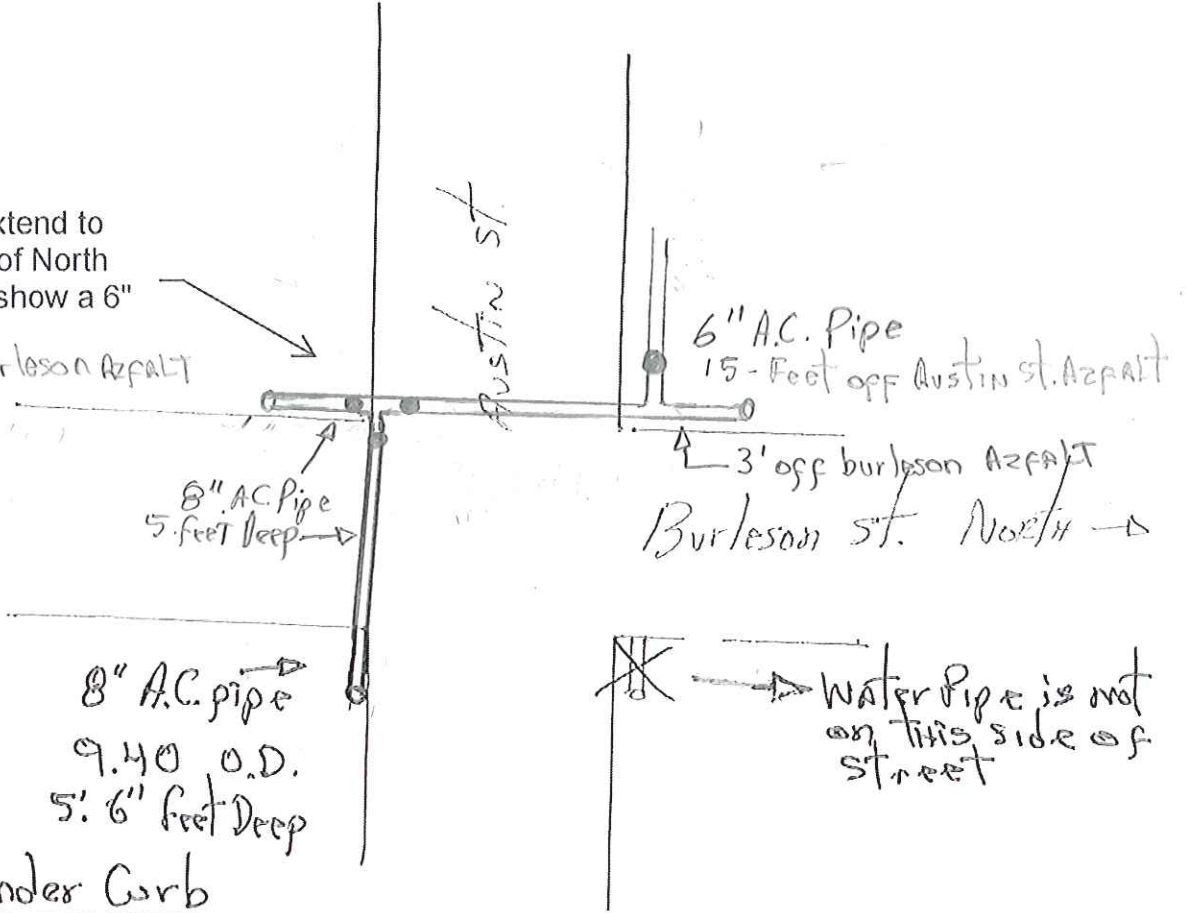 xtend to
of North
show a 6"
rleson AzfALT
Austin St.
6" A.C. Pipe
15-Feet off Austin St. AzfAlT
3' off burleson AzfAlT
Burleson St. North
8" A.C. Pipe
5.feet Deep
8" A.C. pipe
9.40 O.D.
5'. 6" feet Deep
nder Curb
Water Pipe is not
on This side of
street